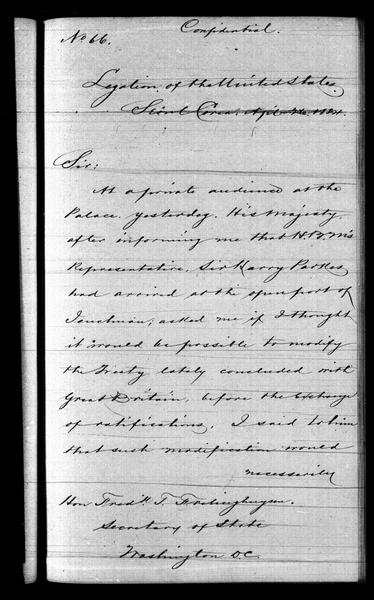 Confidential.
No 66.
Legation of the United States
Séoul Corea. April 26. 1884.
Sir:
At a private audience at the
Palace yesterday, His Majesty,
after informing me that H.B.M's
Representative, Sir Harry Parkes,
had arrived at the open port of
Jenchuan, asked me if I thought
it would be possible to modify
the Treaty lately concluded with
Great Britain, before the exchange
of ratifications. I said to him
that such modification would
necessarily
Hon. Fredk. T. Frelinghuysen.
Secretary of State
Washington D.C.